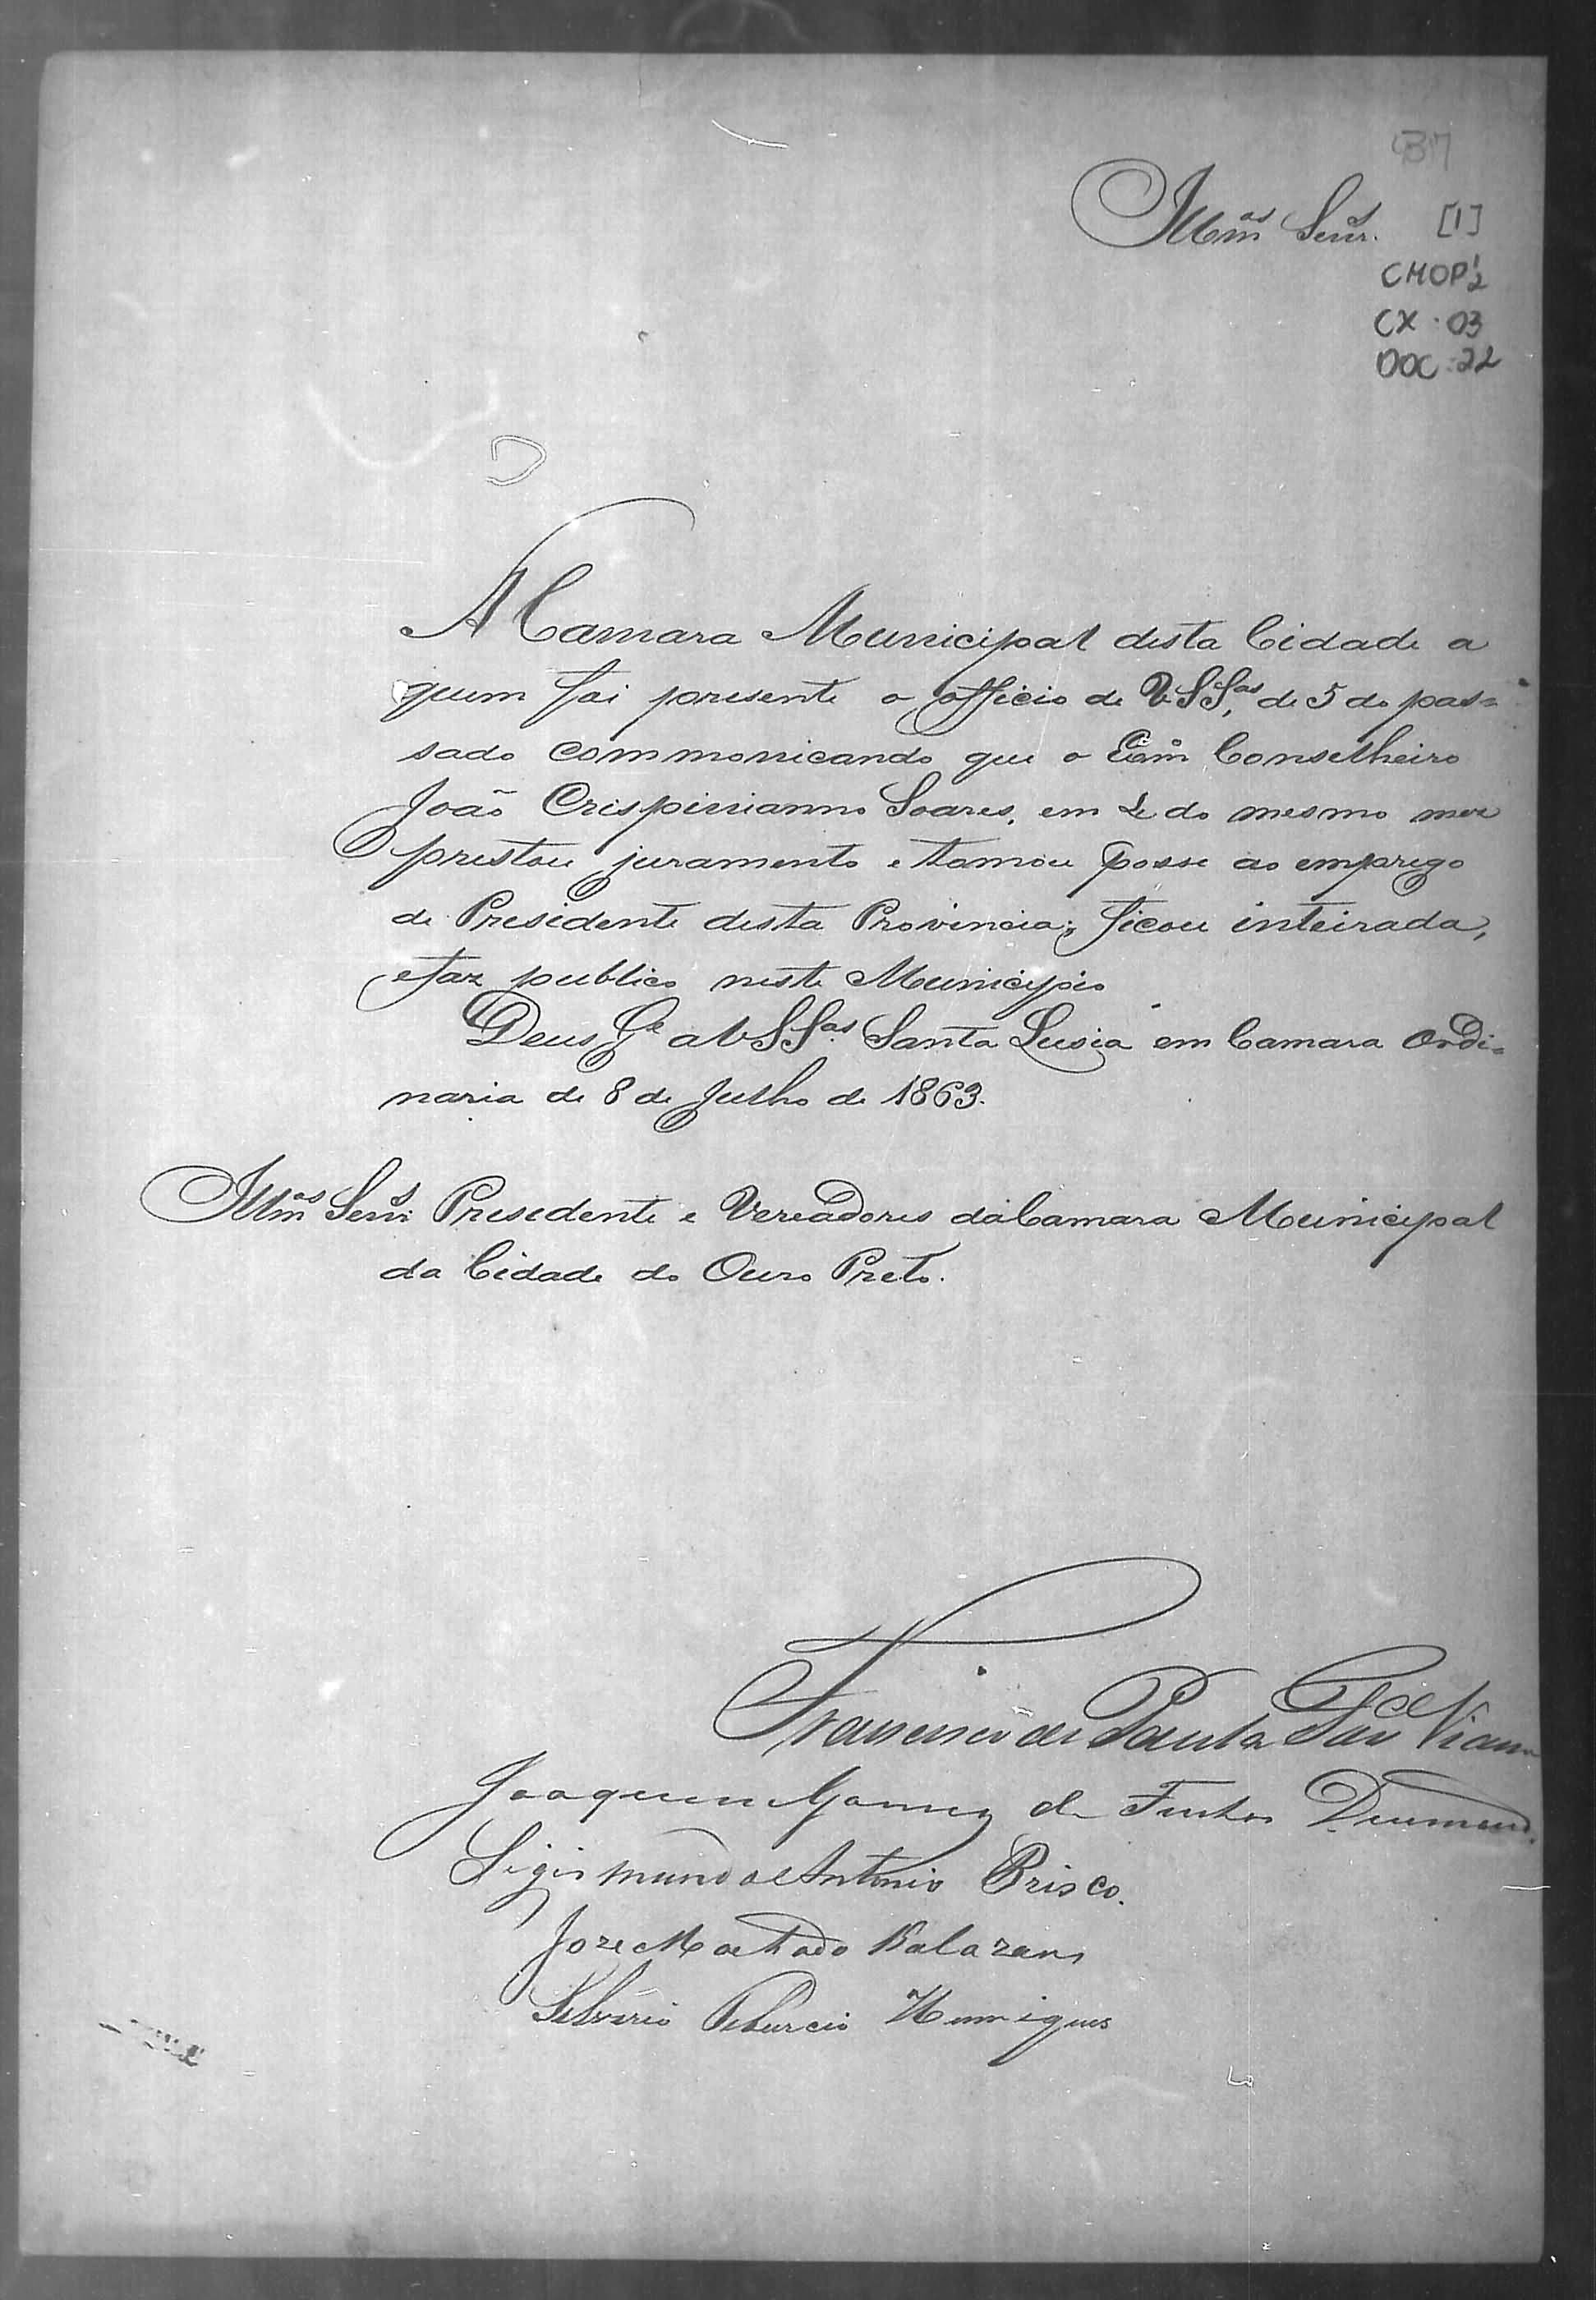 Illmos Senrs.
[1]
CMOP 1/2
CX. 03
DOC. 22
A Camara Municipal desta Cidade a
quem foi presente o officio de VSSas, de 5 do pas=
sado commonicando que o Exmo Conselheiro
João Crispinianno Soares, em 4 do mesmo mez
prestou juramento e tomou posse ao emprego
de Presidente desta Provincia; ficou inteirada,
e faz publico neste Municipio
Deus Ge a VSSas. Santa Lusia em Camara Ordi=
naria de 8 de Julho de 1863.
Illmos Senrs Presidente e Vereadores da Camara Municipal
da Cidade do Ouro Preto.
Francisco de Paula Fonca Vianna
Joaquim Gomes de Freitas Drumond.
Sigismundo Antonio Brisco.
Joze Machado Kalazans
Silverio Tiburcio Henriques